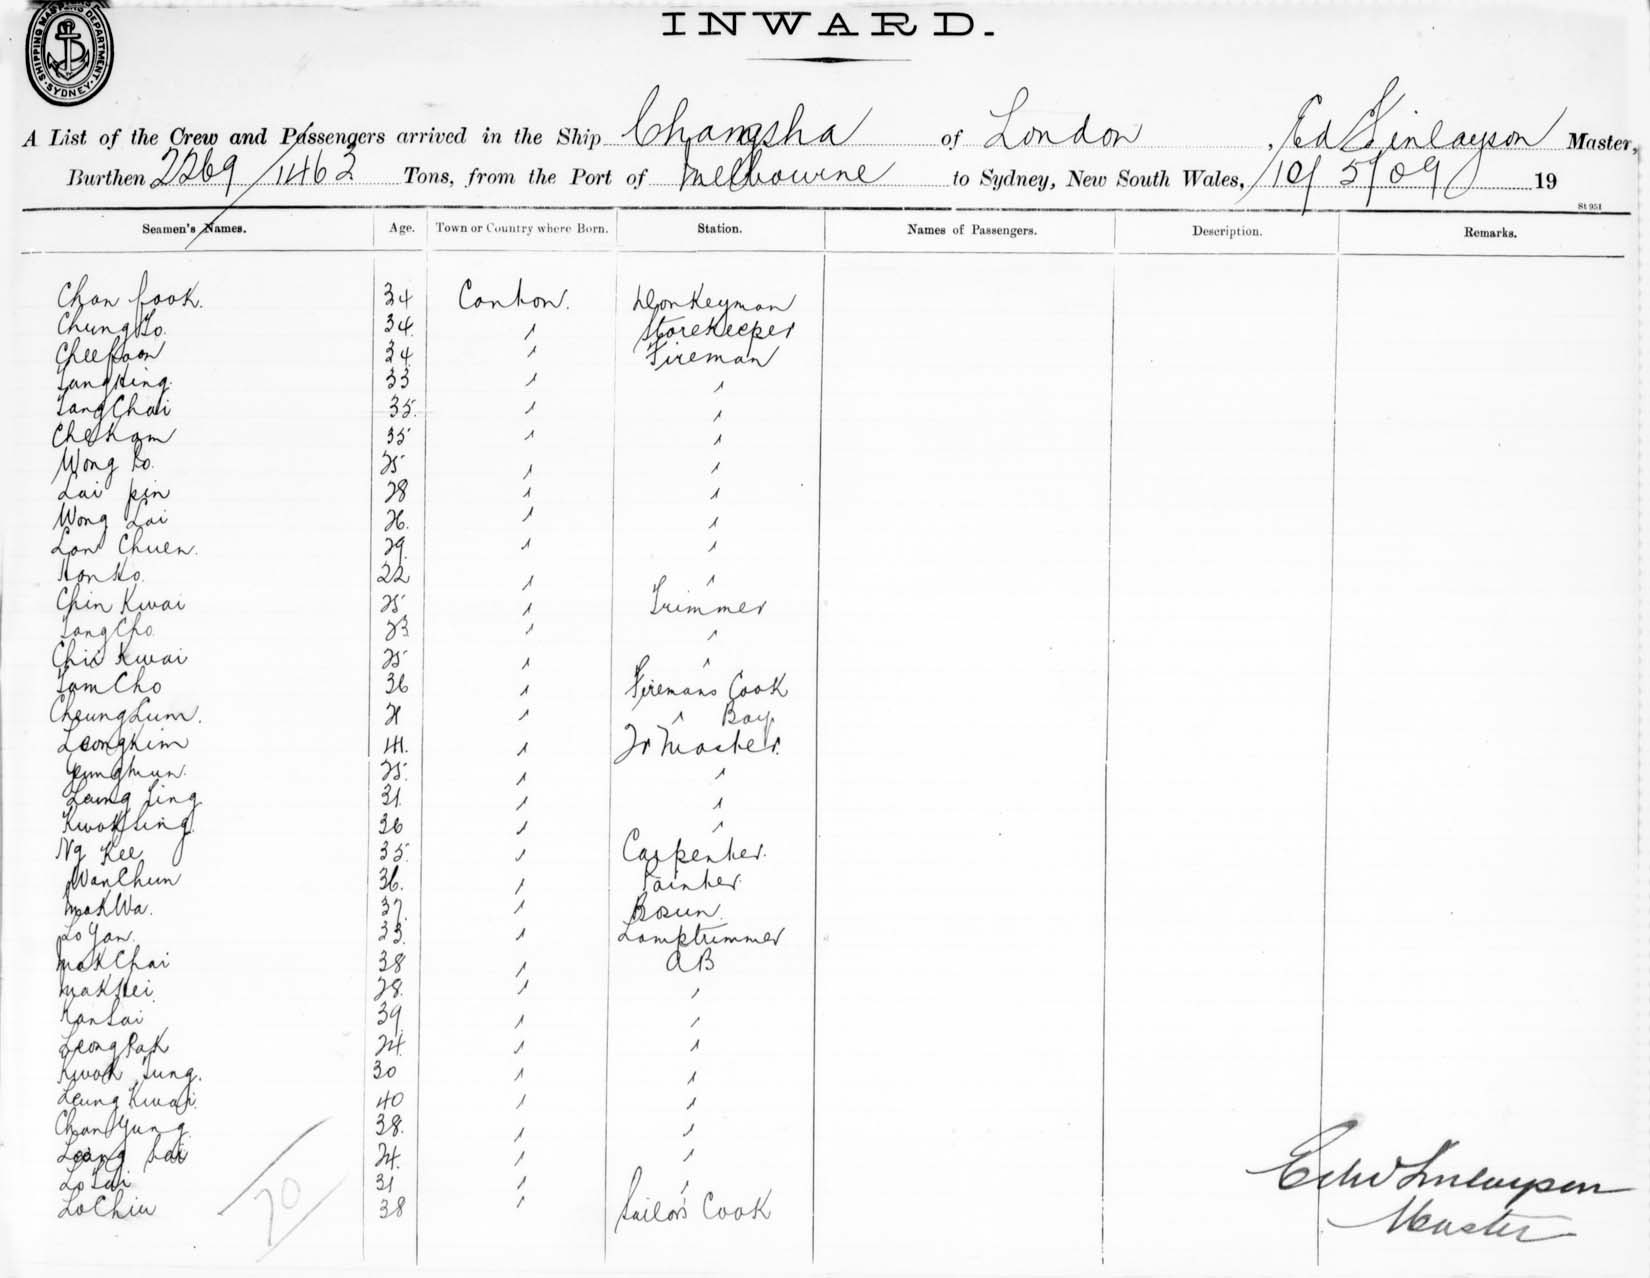 SHIPPING MASTERS DEPARTMENT. SYDNEY.
INWARD.
A List of the Crew and Passengers arrived in the Ship Changsha of London, Ed Finlayson Master,
Burthen 2269/1462 Tons, from the Port of Melbourne to Sydney, New South Wales, 10/5/09 19
St 951
Seamen's Names. Age. Town or Country where Born. Station. Names of Passengers. Description. Remarks.
Chan fook. 34 Canton. Donkeyman
Chung 34 " Storekeeper
34 " Fireman
33 " "
Tang Chai 35. " "
35 " "
Wong 25 " "
Lai pin 28 " "
Wong Lai 26. " "
Lan Chuen. 29. " "
22 " "
Chin Kwai 25 " Trimmer
Tang Cho 23 " "
Kwai 25 " "
Tam Cho 36 " Firemans Cook
Cheung Lum. 21 " " Boy
Leong Kim 41. " Qr Master.
25. " "
Leung Ting 31. " "
Kwok Sing 36 " "
Ng Kee 35. " Carpenter.
Wan Chun 36. " Painter.
Mak Wa. 37. " Bosun.
Lo Yan. 33. " Lamptrimmer
Mak Chai 38 " AB
28. " "
Kan Sai 39 " "
Leong Pak 24. " "
Kwok Tung. 30 " "
Leung Kwai. 40 " "
Chan Yung 38. " "
24. " "
Lo 31 " "
Lo Chiu 38 " Sailors Cook
70
Edw Finlayson
Master